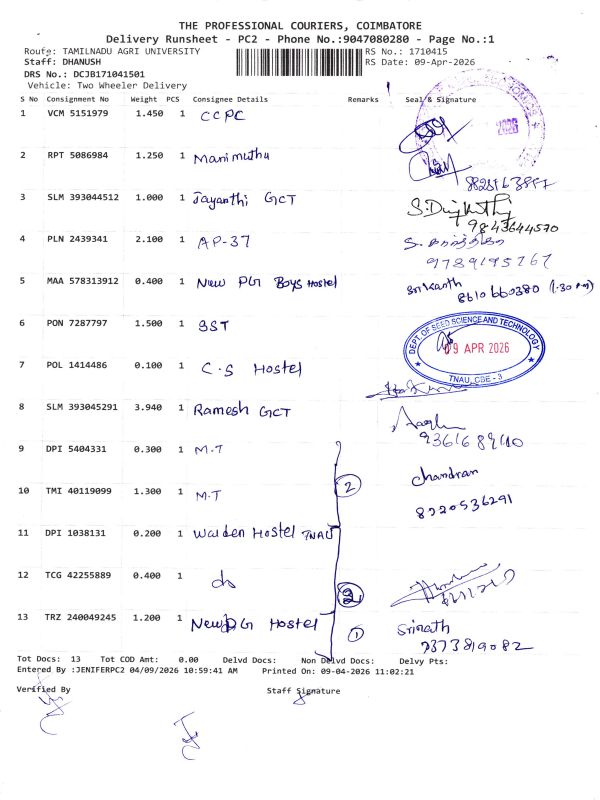 THE PROFESSIONAL COURIERS, COIMBATORE
Delivery Runsheet - PC2 - Phone No.:9047080280 - Page No.:1
Route: TAMILNADU AGRI UNIVERSITY RS No.: 1710415
Staff: DHANUSH RS Date: 09-Apr-2026
DRS No.: DCJB171041501
Vehicle: Two Wheeler Delivery
S No Consignment No Weight PCS Consignee Details Remarks Seal & Signature
1 VCM 5151979 1.450 1 CCPC
2026
2 RPT 5086984 1.250 1 Manimuthu
3 SLM 393044512 1.000 1 Jayanthi GCT
9843644570
4 PLN 2439341 2.100 1 AP-37
9789195767
5 MAA 578313912 0.400 1 New PG Boys Hostel Srikanth
8610660380 (1.30 PM)
6 PON 7287797 1.500 1 SST
DEPT OF SEED SCIENCE AND TECHNOLOGY
09 APR 2026
TNAU, CBE - 3
7 POL 1414486 0.100 1 C.S Hostel
8 SLM 393045291 3.940 1 Ramesh GCT
9 DPI 5404331 0.300 1 M.T
Chandran
10 TMI 40119099 1.300 1 M.T 2
8220536291
11 DPI 1038131 0.200 1 Warden Hostel TNAU
12 TCG 42255889 0.400 1 do 2
13 TRZ 240049245 1.200 1 New PG Hostel 1 Srinath
7373819082
Tot Docs: 13 Tot COD Amt: 0.00 Delvd Docs: Non Delvd Docs: Delvy Pts:
Entered By :JENIFERPC2 04/09/2026 10:59:41 AM Printed On: 09-04-2026 11:02:21
Verified By Staff Signature